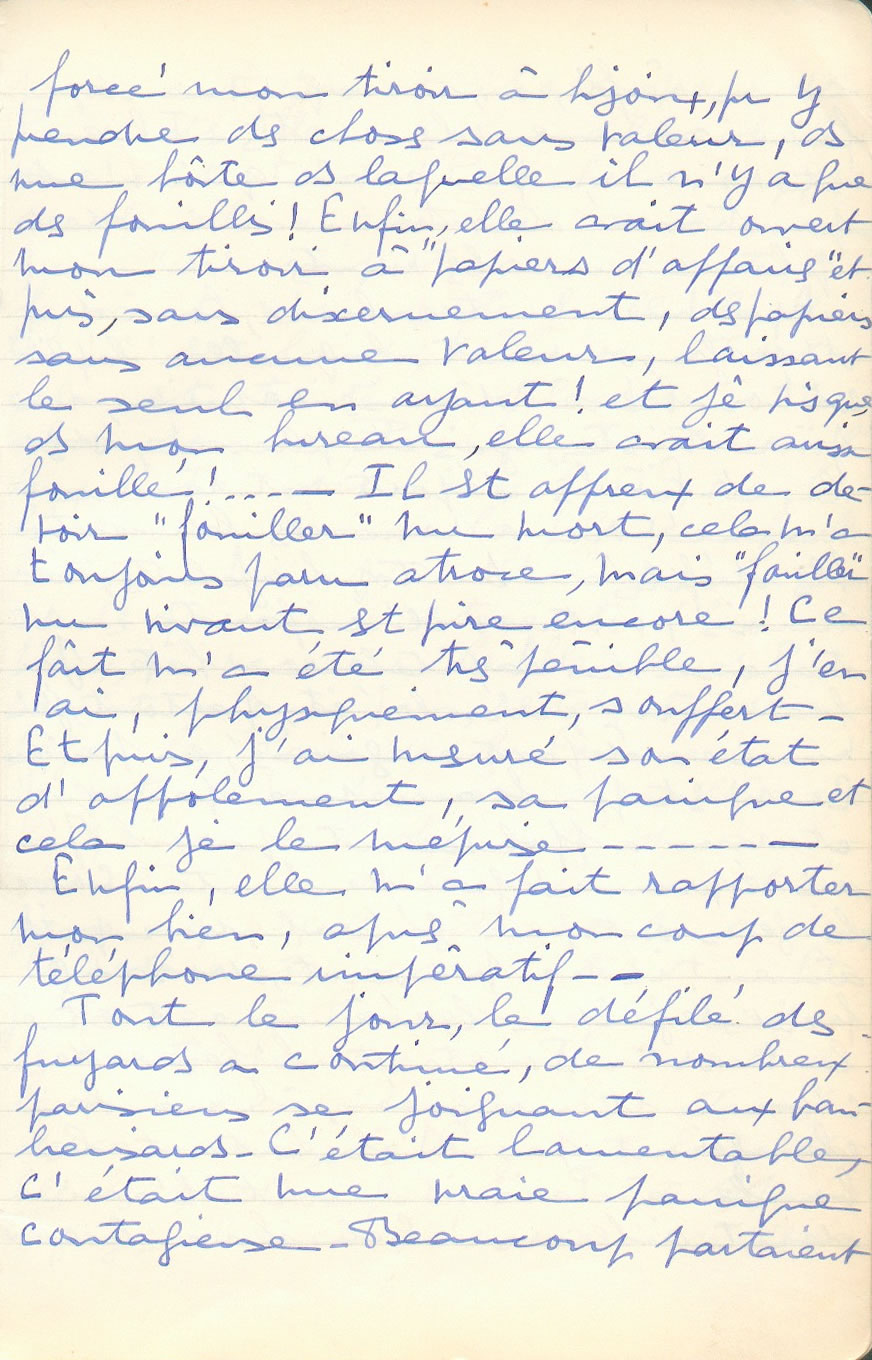 forcé mon tiroir à bijoux, pr y
prendre ds choses sans valeur, ds
une boîte ds laquelle il n'y a que
ds fouillis! Enfin, elle avait ouvert
mon tiroir à "papiers d'affaires" et
pris, sans discernement, ds papiers
sans aucune valeur, laissant
le seul en ayant! et jusque
ds mon bureau, elle avait aussi
fouillé!..... — Il st affreux de de-
voir "fouiller" un mort, cela m'a
toujours paru atroce, mais "fouiller"
un vivant st pire encore! Ce
fait m'a été très pénible, j'en
ai, physiquement, souffert -
Et puis, j'ai mesuré son état
d'affolement, sa panique et
cela je le méprise - - - - - -
Enfin, elle m'a fait rapporter
mon bien, après mon coup de
téléphone impératif - -
Tout le jour, le défilé des
fuyards a continué, de nombreux
parisiens se joignant aux ban-
lieusards - C'était lamentable,
c'était une vraie panique
contagieuse - Beaucoup partaient